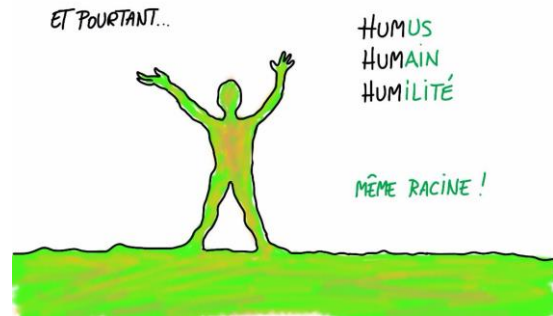 ET POURTANT...
HUMUS
HUMAIN
HUMILITÉ
MÊME RACINE !